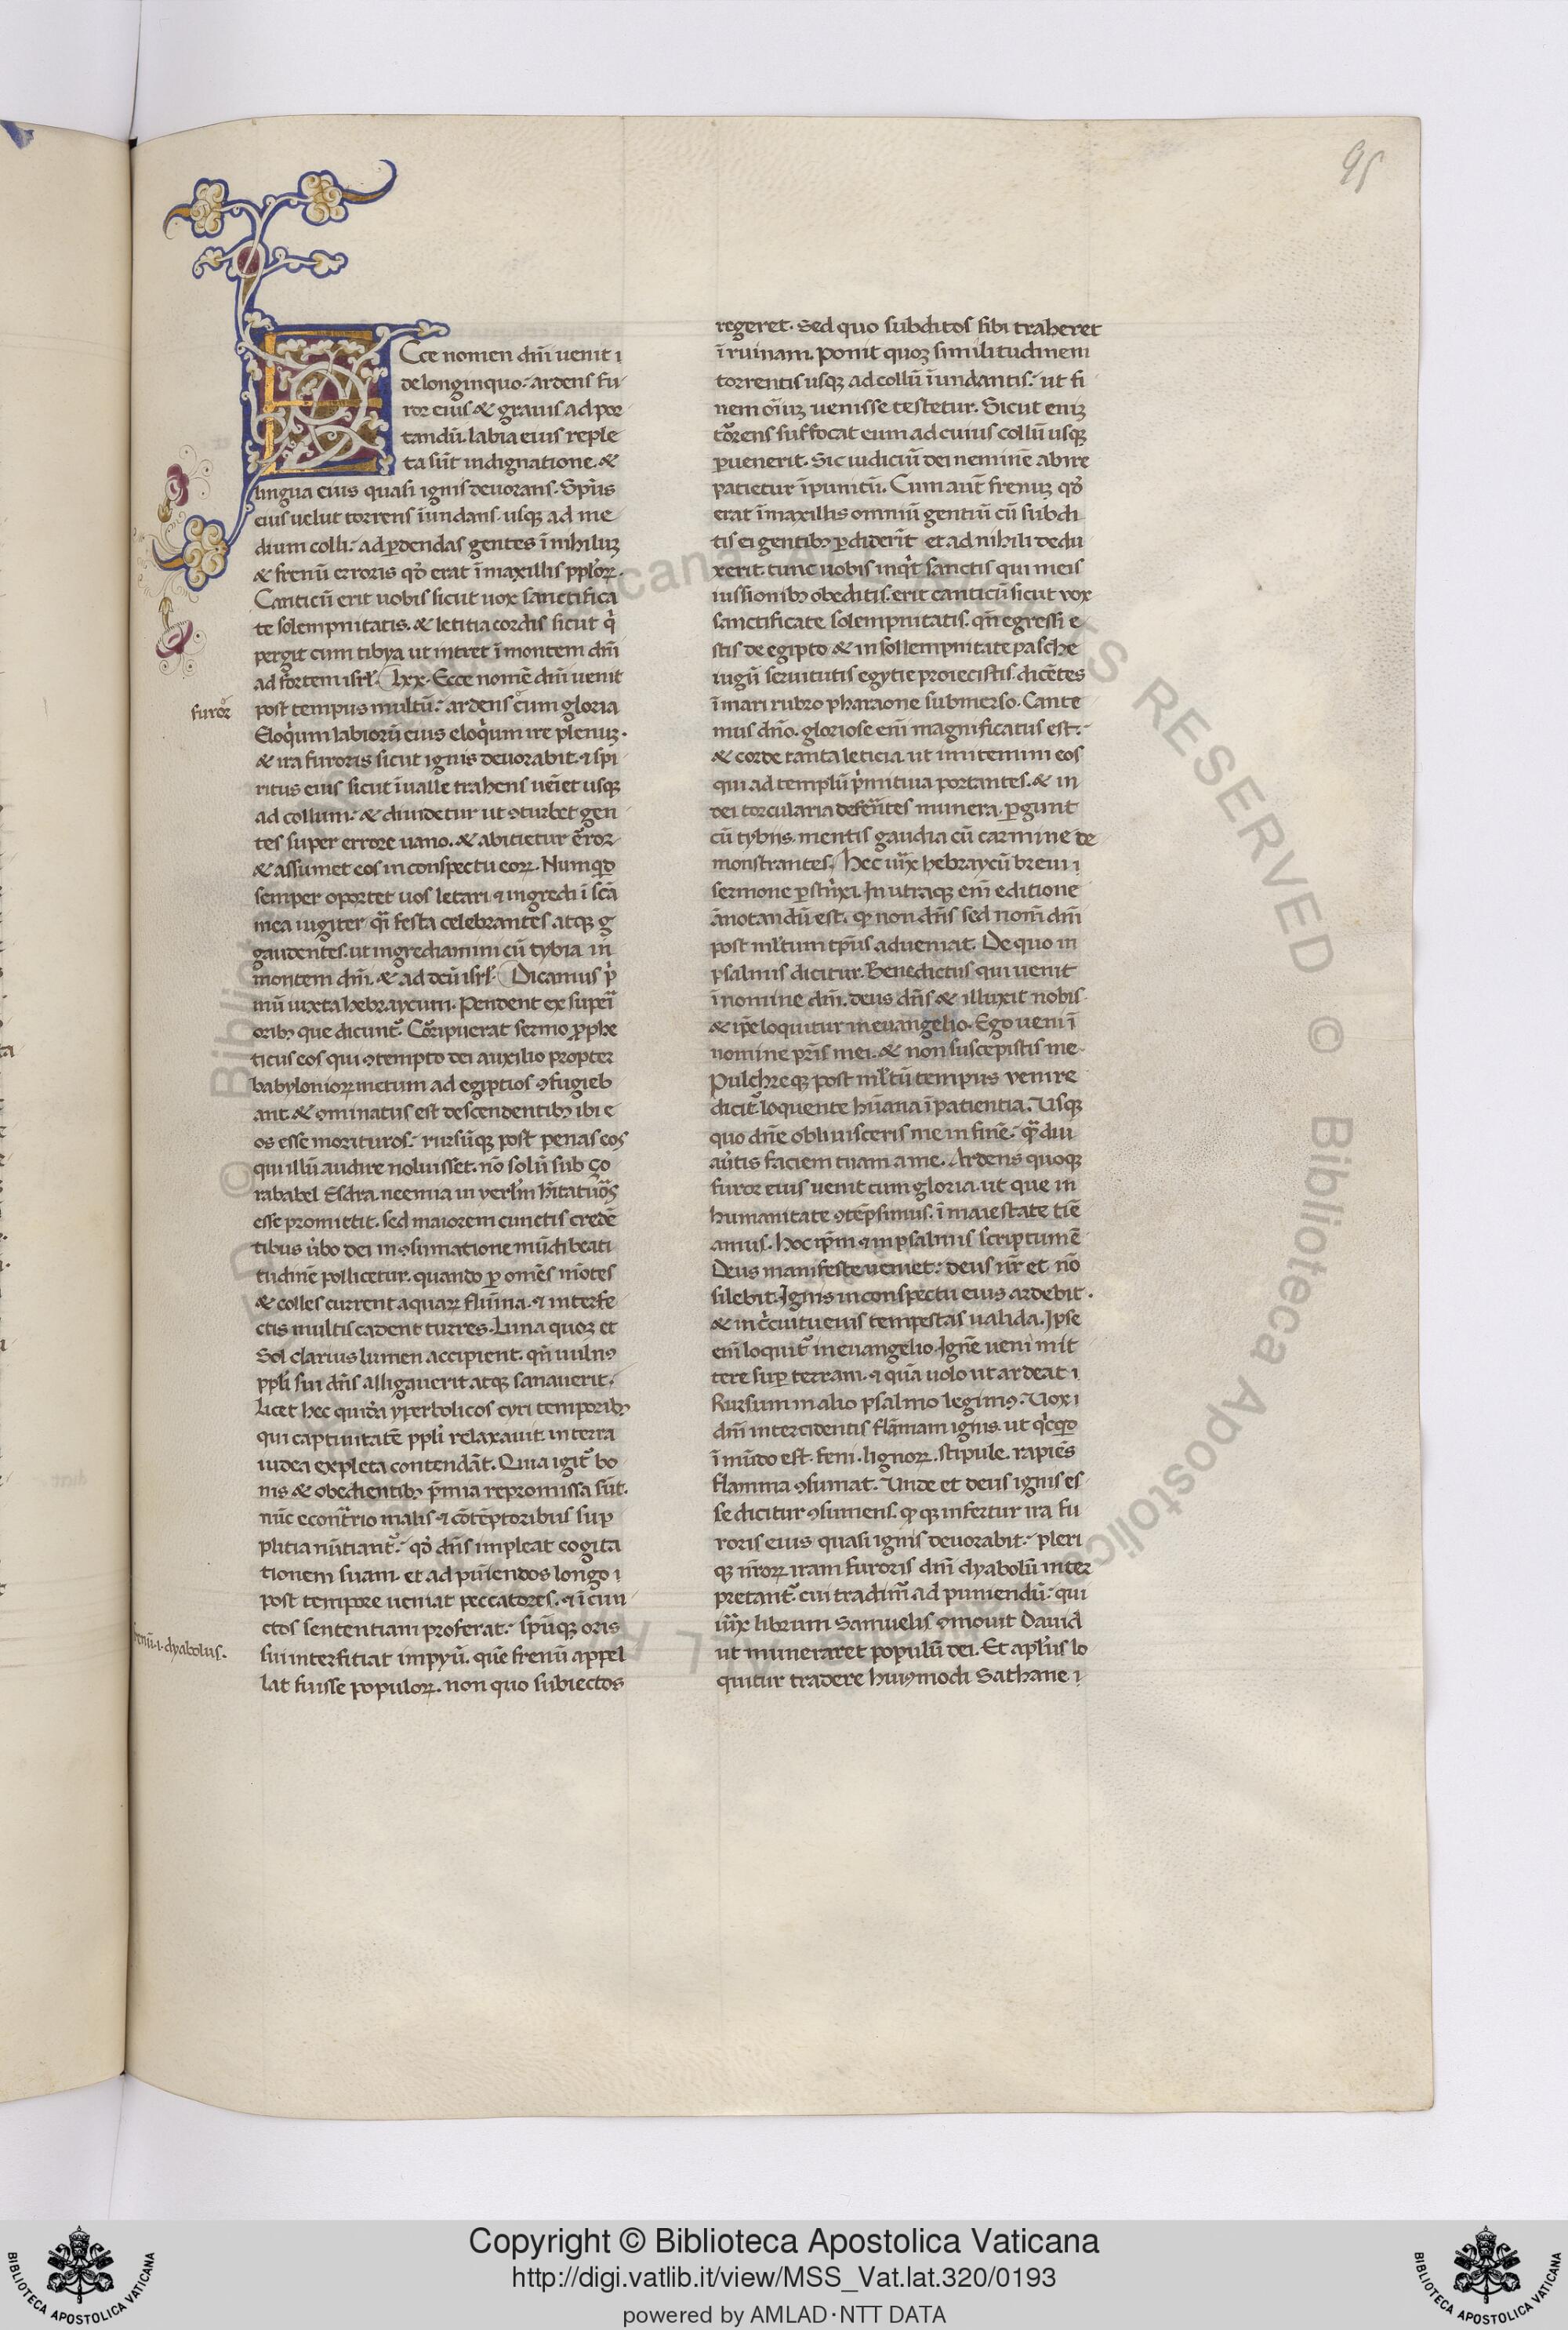 95
Ecce nomen dn̄i uenit i
de longinquo: ardens fu
ror eius & grauis ad por
tandū. labia eius reple
ta sūt indignatione. &
lingua eius quasi ignis deuorans. Sp̄us
eius uelut torrens īundans. usqꝫ ad me
dium colli: ad ꝑdendas gentes ī nihiluꝫ
& frenū erroris qď erat ī maxillis ppl'oꝝ.
Canticū erit uobis sicut uox sanctifica
te solempnitatis. & letitia cordis sicut q̇
pergit cum tibya ut intret ī montem dn̄i
ad fortem isrl'. lxx. Ecce nomē dn̄i uenit
furor
post tempus multū: ardens cum gloria
Eloq̇um labiorū eius eloq̇um ire plenuꝫ.
& ira furoris sicut ignis deuorabit. ⁊ spi
ritus eius sicut ī ualle trahens ueīet usqꝫ
ad collum: & diuidetur ut ꝯturbet gen
tes super errore uano. & abitietur error
& assumet eos in conspectu eoꝝ. Numqď
semper oportet uos letari ⁊ ingredi ī sc̄a
mea iugiter q̄i festa celebrantes atqꝫ g
gaudentes. ut ingrediamini cū tybia in
montem dn̄i. & ad deū isrl'. Dicamus ṗ
mū iuxta hebraycum. Pendent ex superi
oribꝫ que dicunt᷑. Corripuerat sermo ꝓphe
ticus eos qui ꝯtempto dei auxilio propter
babylonioꝝ metum ad egiptios ꝯfugieb
ant. & ꝯminatus est descendentibꝫ ibi e
os esse morituros: rursūqꝫ post penas eos
qui illū audire noluisset. nō solū sub ço
rababel Esdra. neemia in yerl'm h̄itaturos
esse promittit. sed maiorem cunctis credē
tibus ūbo dei in ꝯsumatione mūdi beati
tudinē pollicetur. quando ꝑ omēs mōtes
& colles current aquaꝝ flumina. ⁊ interfe
ctis multis cadent turres. Luna quoꝫ et
Sol clarius lumen accipient. qn̄ uulnꝯ
ppl'i sui dn̄s alligauerit atqꝫ sanauerit.
Licet hec quida yperbolicos cyri temporibꝫ
qui captiuitatē ppl'i relaxauit in terra
iudea expleta contendāt. Quia igit᷑ bo
nis & obedientibꝫ p̄mia repromissa sūt.
nūc econtrrio malis ⁊ cōtēptoribus sup
plitia nūtiant᷑: qď dn̄s impleat cogita
tionem suam. et ad puniendos longo i
post tempore ueniat peccatores. ⁊ ī cun
ctos sententiam proferat: spūqꝫ oris
sui interfitiat impyū. quē frenū appel
lat fuisse populoꝝ. non quo subiectos
.i. dyabolus.
regeret. sed quo subditos sibi traheret
ī ruinam. ponit quoꝫ similitudinem
torrentis usqꝫ ad collū īundantis: ut fi
nem oīuꝫ uenisse testetur. Sicut eniꝫ
torrens suffocat eum ad cuius collū usqꝫ
ꝑuenerit. Sic iudiciū dei neminē abire
patietur īpunitū. Cum aut̄ frenuꝫ qď
erat ī maxillis omniū gentiū cū subdi
tis ei gentibꝫ ꝑdiderit̄ et ad nihili dedu
xerit. tunc uobis inq̇t sanctis qui meis
iussionibꝫ obeditis. erit canticū sicut vox
sanctificate solempnitatis. qn̄ egressi e
stis de egipto & in sollempnitate pasche
iugū seruitutis egytie proiecistis. dicētes
ī mari rubro pharaone submerso. Cante
mus dn̄o. gloriose em̄ magnificatus est:
& corde tanta leticia ut imitemini eos
qui ad templū ṗmitiua portantes. & in
dei torcularia deferētes munera ꝑgunt
cū tybiis. mentis gaudia cū carmine de
monstrantes. Hec iuxͣ hebraycū breui i
sermone ꝑstrixi. In utraqꝫ em̄ editione
ānotandū est. ꝙ non dn̄s sed nom̄ dn̄i
post ml'tum tp̄us adueniat. De quo in
psalmis dicitur. Benedictus qui uenit
ī nomine dn̄i. deus dn̄s & illuxit nobis.
& ip̄e loquitur in euangelio. Ego ueni ī
nomine pr̄is mei. & non suscepistis me.
Pulchreqꝫ post ml'tū tempus venire
dicit᷑ loquente hūana īpatientia. Usqꝫ
quo dn̄e obliuisceris me in finē: qͣdiu
aūtis faciem tuam a me. Ardens quoqꝫ
furor eius uenit cum gloria. ut que in
humanitate ꝯtēpsimus. ī maiestate tiē
amus. Hoc ip̄m ⁊ in psalmis scriptum ē
Deus manifeste ueniet: deus nr̄ et nō
silebit. Ignis in conspectu eius ardebit.
& in ċcuitu eius tempestas ualida. Ipse
em̄ loquit᷑ in euangelio. Ignē ueni mit
tere suꝑ terram. ⁊ quā uolo ut ardeat i
Rursum in alio psalmo legimꝯ. Uox i
dn̄i intercidentis flāmam ignis. ut q̇cqď
ī mūdo est. feni. lignoꝝ. stipule. rapiēs
flamma ꝯsumat. Unde et deus ignis es
se dicitur ꝯsumens. ꝙ qꝫ infertur ira fu
roris eius quasi ignis deuorabit: pleri
qꝫ nr̄oꝝ iram furoris dn̄i dyabolū inter
pretant᷑. cui tradimur ad puniendū: qui
iuxͣ librum Samuelis ꝯmouit Dauid
ut numeraret populū dei. Et apl'us lo
quitur tradere huiꝯmodi Sathane i
© Biblioteca Apostolica Vaticana ALL RIGHTS RESERVED
Copyright © Biblioteca Apostolica Vaticana
http://digi.vatlib.it/view/MSS_Vat.lat.320/0193
powered by AMLAD · NTT DATA
BIBLIOTECA APOSTOLICA VATICANA
BIBLIOTECA APOSTOLICA VATICANA